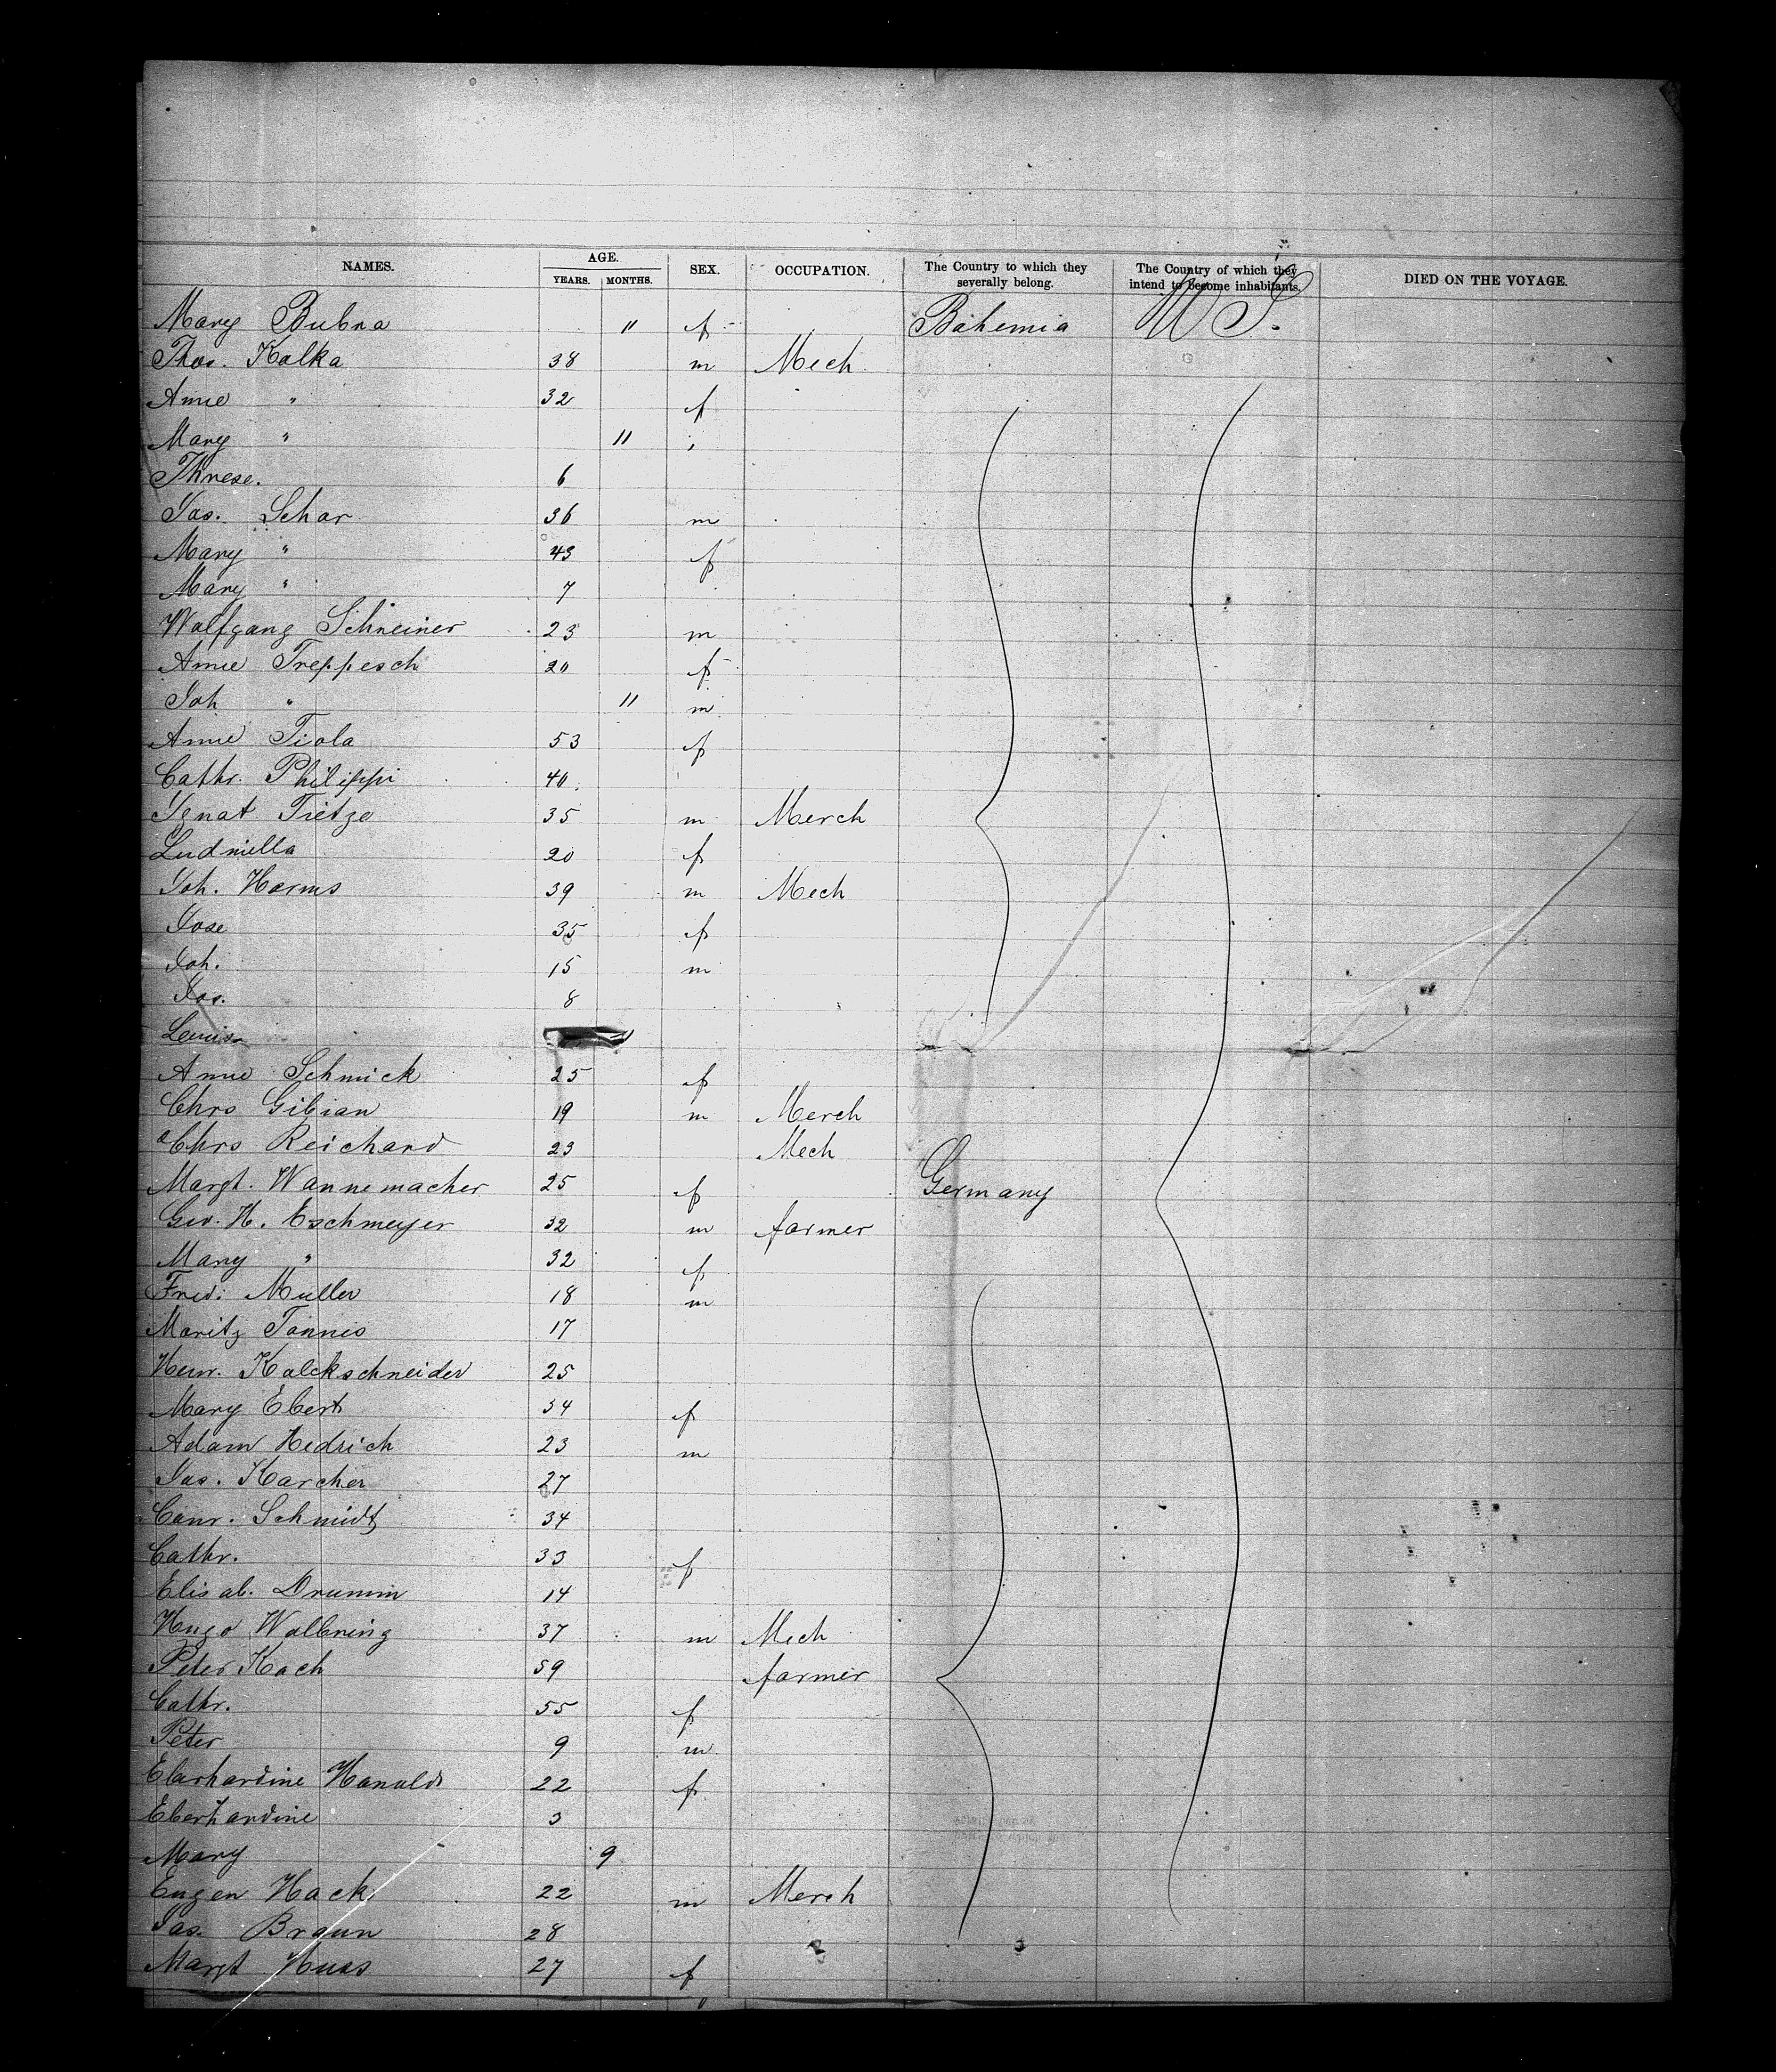 NAMES. AGE. YEARS. MONTHS. SEX. OCCUPATION. The Country to which they severally belong. The Country of which they intend to become inhabitants. DIED ON THE VOYAGE.
Mary Bubna 11 f Bohemia U S.
Thos. Kolka 38 m Mech
Anne " 32 f
Mary " 11 "
Threse. 6
Jos. Schar 36 m
Mary " 43 f
Mary " 7
Wolfgang Schreiner 23 m
Anne Treppesch 20 f
Joh " 11 m
Anne Fiola 53 f
Cathr. Philippi 40
Ignat Tietze 35 m Merch
Ludmilla 20 f
Joh. Harms 39 m Mech
Jose 35 f
Joh. 15 m
Jos. 8
Louis
Anne Schmick 25 f
Chrs Gibian 19 m Merch
Chrs Reichard 23 Mech
Margt. Wannemacher 25 f Germany
Geo. H. Eschmeyer 32 m farmer
Mary " 32 f
Fred: Muller 18 m
Moritz Tonnis 17
Henr. Kalckschneider 25
Mary Ebert 54 f
Adam Hedrich 23 m
Jos. Karcher 27
Conr. Schmidt 34
Cathr. 33 f
Elisab. Drumm 14
Hugo Walbring 37 m Mech
Peter Koch 59 farmer
Cathr. 55 f
Peter 9 m
Eberhardine Hanold 22 f
Eberhardine 3
Mary 9
Eugen Hack 22 m Merch
Jos. Braun 28
Margt Huss 27 f